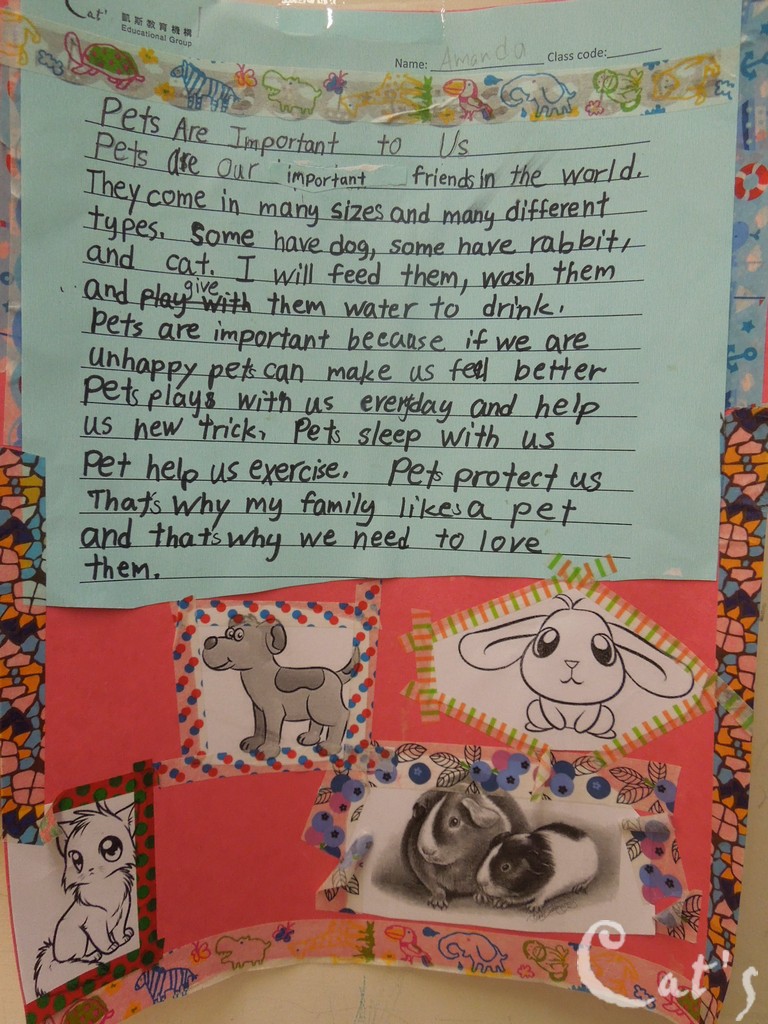 Cat' 凱斯教育機構
Educational Group
Name: Amanda Class code:
Pets Are Important to Us
Pets are our important friends in the world.
They come in many sizes and many different
types. Some have dog, some have rabbit,
and cat. I will feed them, wash them
give
and play with them water to drink.
Pets are important beecause if we are
unhappy pets can make us feel better
Pets plays with us everyday and help
us new trick. Pets sleep with us
Pet help us exercise. Pets protect us
That's why my family likes a pet
and that's why we need to love
them.
Cat's